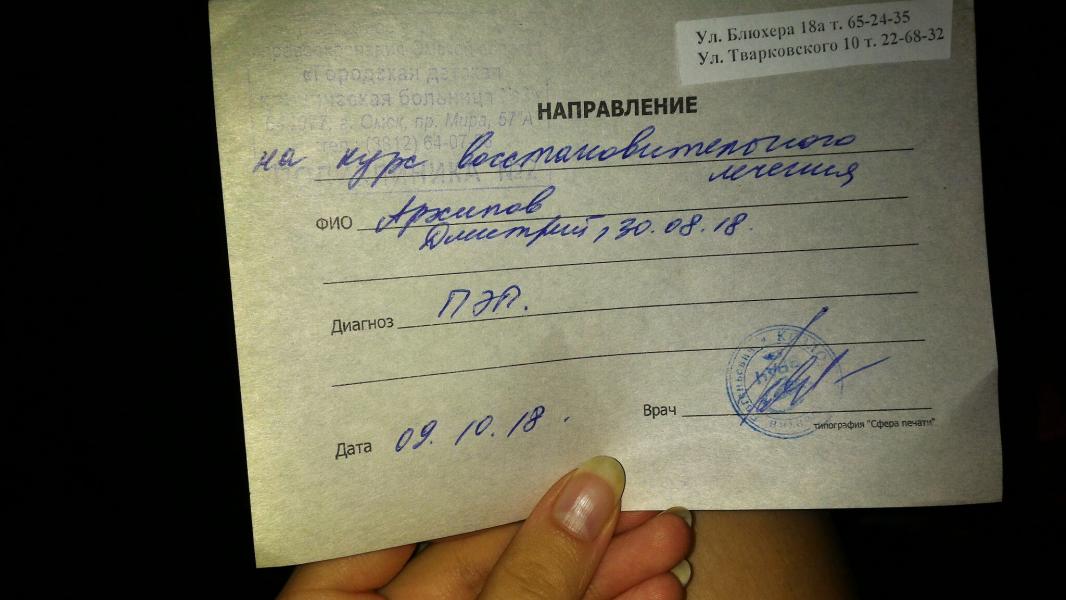 Ул. Блюхера 18а т. 65-24-35
Ул. Тварковского 10 т. 22-68-32
«Городская детская
больница
г. Омск, пр. Мира, 57 А
НАПРАВЛЕНИЕ
на курс восстановительного
лечения
ФИО Архипов
Дмитрий, 30.08.18.
Диагноз ПЭП.
Врач
типография "Сфера печати"
Дата 09.10.18.